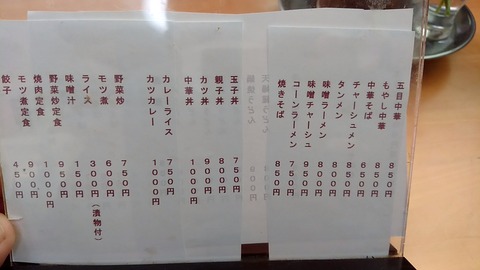 五目中華 850円
もやし中華 850円
中華そば 650円
チャーシュメン 850円
タンメン 800円
味噌ラーメン 850円
味噌チャーシュ 950円
コーンラーメン 750円
焼きそば 850円
玉子丼 750円
親子丼 800円
カツ丼 900円
中華丼 1000円
カレーライス 750円
カツカレー 1000円
野菜炒 750円
モツ煮 600円
ライス 300円(漬物付)
味噌汁 150円
野菜炒定食 950円
焼肉定食 1000円
モツ煮定食 900円
餃子 450円